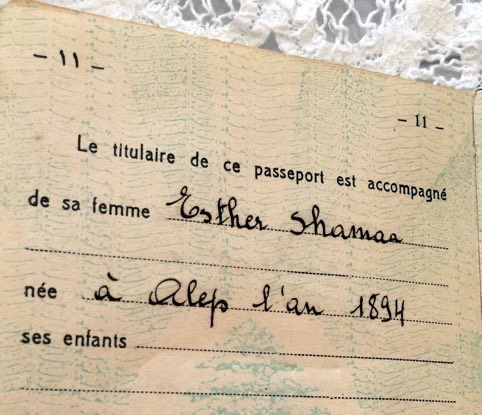 - ١١ -
- 11 -
Le titulaire de ce passeport est accompagné
de sa femme Esther Shamaa
née à Alep l'an 1894
ses enfants